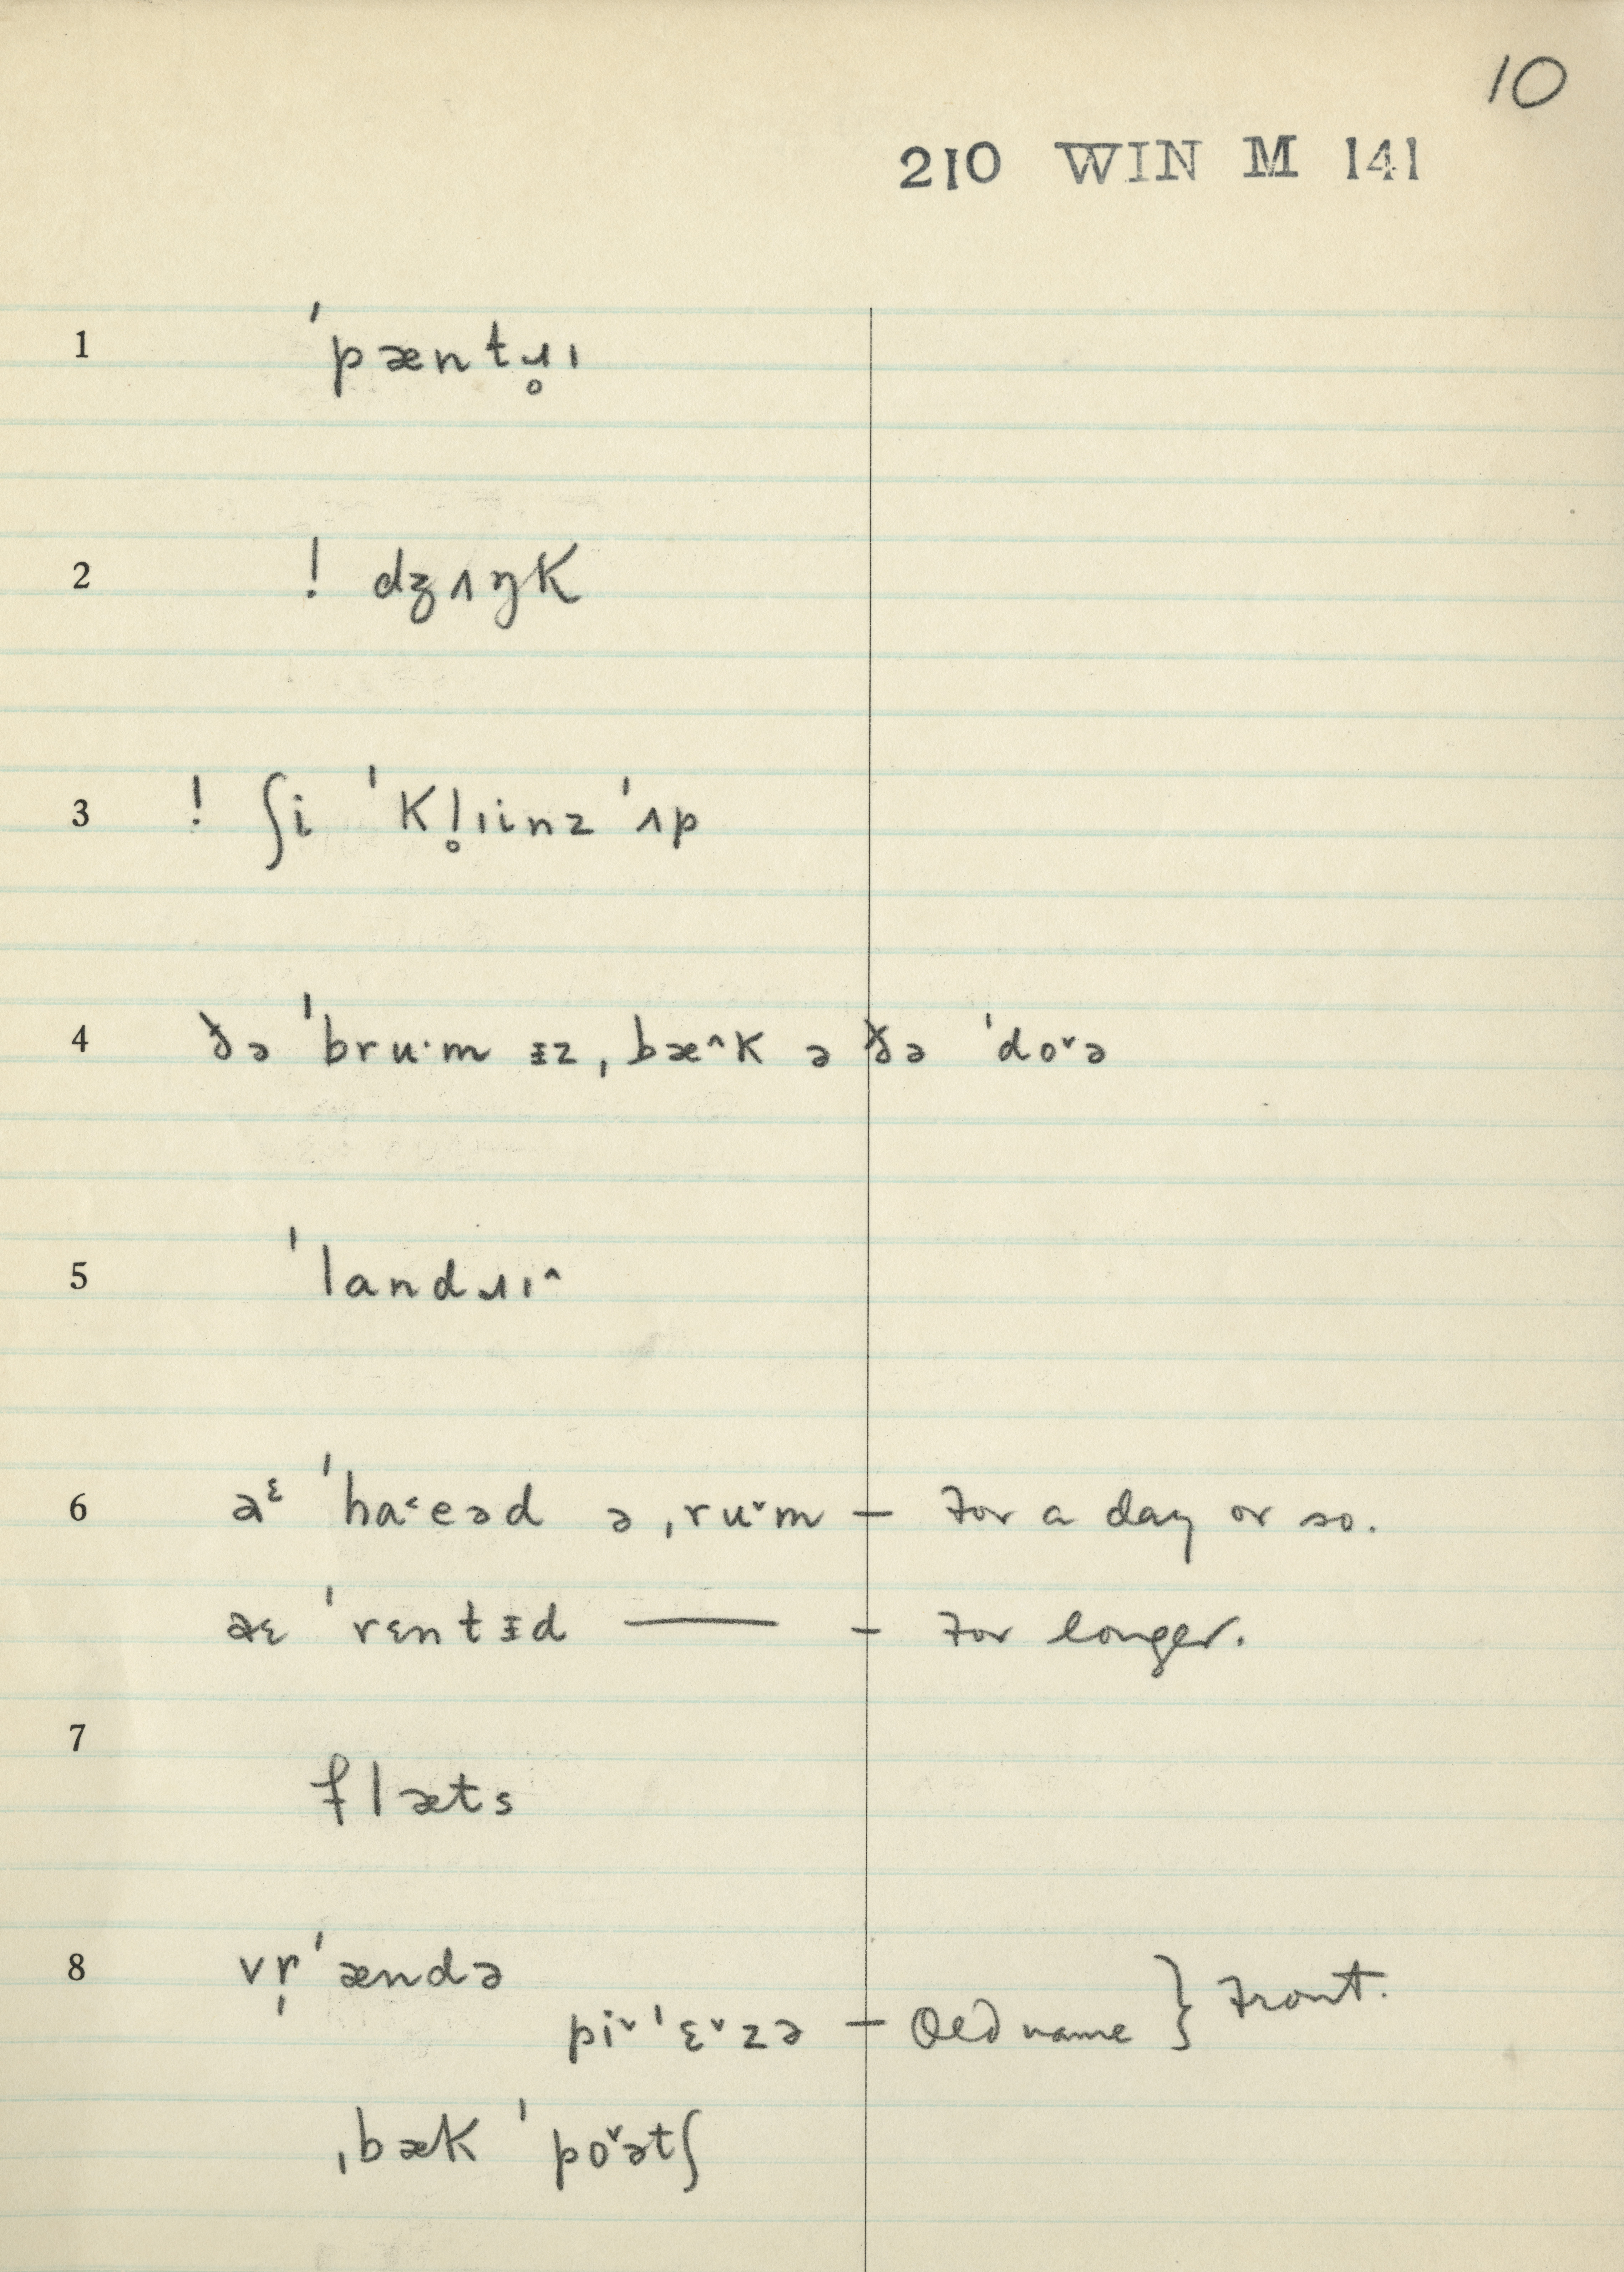 10
210 WIN M 141
1 ˈpæntɹ̥ɪ
2 ! dʒʌŋk
3 ! ʃi ˈkl̥ɪinz ˈʌp
4 ðə ˈbruˑm ᵻz ˌbæ˄k ə ðə ˈdo˅ə
5 ˈlandɹɪ˄
6 aᵋ ˈha˂eəd ə ˌru˅m — for a day or so.
aɛ ˈrɛntᵻd —— - for longer.
7 flæts
8 vr̩ˈændə
pi˅ˈɛ˅zə — Old name } Front.
ˌbæk ˈpo˅ətʃ